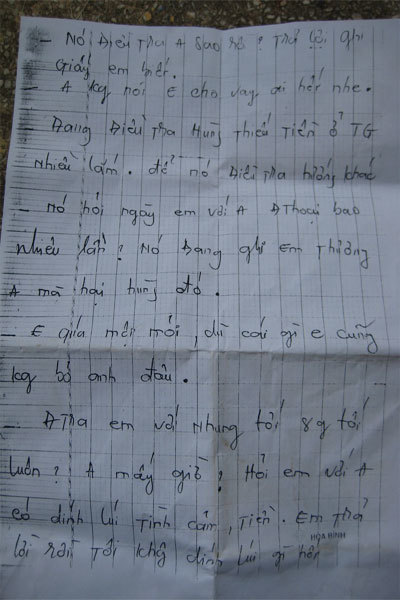 - Nó Điều Tra A Sao rồi? Trả lời ghi
Giấy em biết.
- A kg nói E cho vay ai hết nhe.
- Đang Điều Tra Hưng Thiếu Tiền ở TG
Nhiều lắm. để nó Điều Tra hướng khác
- Nó hỏi ngày em với A ĐThoại bao
nhiêu lần? Nó Đang nghi Em Thương
A mà hại Hưng đó.
- E giữa mệt mỏi, dù cái gì e cũng
kg bỏ anh đâu.
- ĐTra em với Nhung tối 8g tối
luôn? A mấy giờ? Hỏi em với A
có dính líu Tình cảm, Tiền. Em Trả
lời rồi Tôi khg dính líu gì hết
HÒA BÌNH